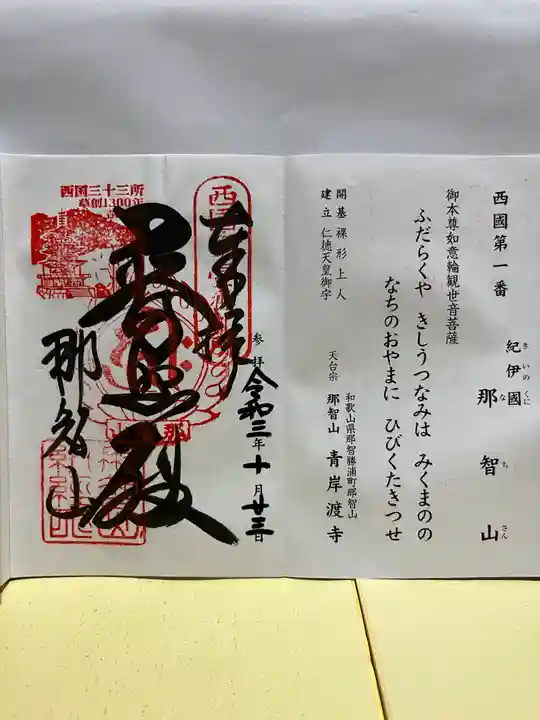 西國第一番
紀伊國
きいのくに
那智山
なちさん
御本尊如意輪観世音菩薩
ふだらくや きしうつなみは みくまのの
なちのおやまに ひびくたきつせ
開基 裸形上人
建立 仁徳天皇御宇
天台宗
和歌山県那智勝浦町那智山
那智山 青岸渡寺
奉拝
参拝 令和三年十月廿三日
普照殿
那智山
西国三十三所
草創1300年